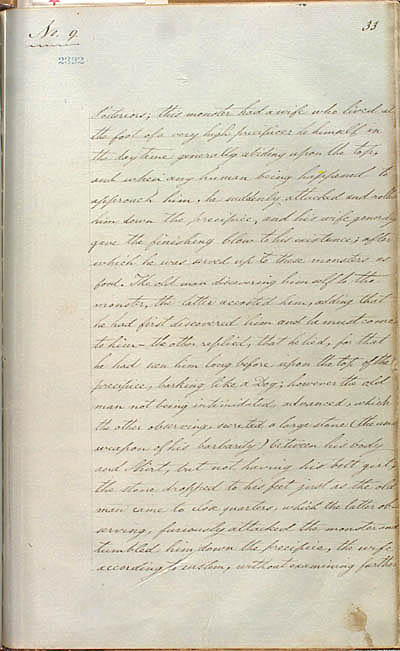 No. 9.
33
2332
Posteriors; this monster had a wife who lived at
the foot of a very high precipice he himself in
the day time generally abiding upon the top,
and when any human being happened to
approach him, he suddenly attacked and rolled
him down the precipice, and his wife generally
gave the finishing blow to his existence; after
which he was served up to these monsters as
food. The old man discovering himself to the
monster, the latter accosted him, adding that
he had first discovered him and he must come
to him – the other replied, that he lied, for that
he had seen him long before, upon the top of the
precipice, barking like a Dog; however the old
man not being intimidated, advanced, which
the other observing secreted a large stone (the usual
weapon of his barbarity) between his body
and Shirt, but not having his belt girt,
the stone dropped to his feet just as the old
man came to close quarters, which the latter ob-
serving, furiously attacked the monster and
tumbled him down the precipice, the wife
according to custom, without examining further